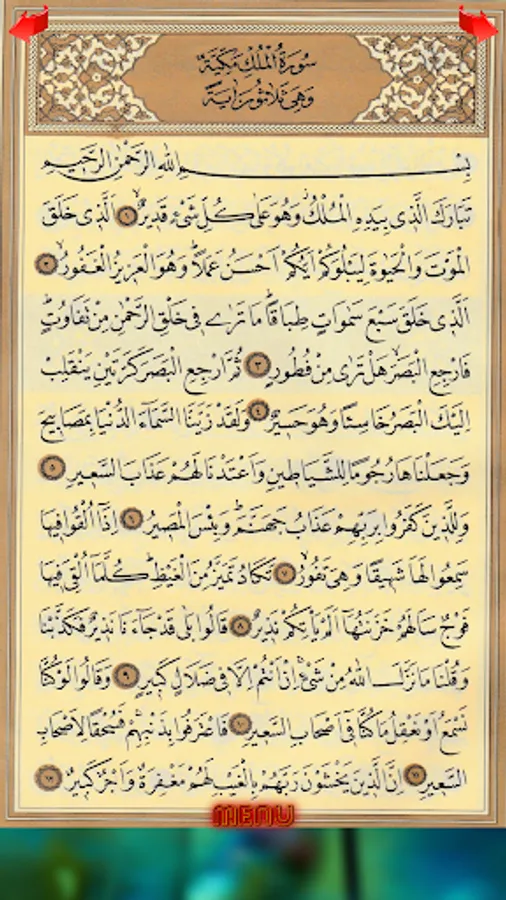 سُورَةُ الْمُلْكِ مَكِّيَّةٌ
وَهِيَ ثَلَاثُونَ اٰيَةً
بِسْمِ اللّٰهِ الرَّحْمٰنِ الرَّحٖيمِ
تَبَارَكَ الَّذٖى بِيَدِهِ الْمُلْكُ وَهُوَ عَلٰى كُلِّ شَىْءٍ قَدٖيرٌ ﴿١﴾ اَلَّذٖى خَلَقَ
الْمَوْتَ وَالْحَيٰوةَ لِيَبْلُوَكُمْ اَيُّكُمْ اَحْسَنُ عَمَلًا وَهُوَ الْعَزٖيزُ الْغَفُورُ ﴿٢﴾
اَلَّذٖى خَلَقَ سَبْعَ سَمٰوَاتٍ طِبَاقًا مَا تَرٰى فٖى خَلْقِ الرَّحْمٰنِ مِنْ تَفَاوُتٍ
فَارْجِعِ الْبَصَرَ هَلْ تَرٰى مِنْ فُطُورٍ ﴿٣﴾ ثُمَّ ارْجِعِ الْبَصَرَ كَرَّتَيْنِ يَنْقَلِبْ
اِلَيْكَ الْبَصَرُ خَاسِئًا وَهُوَ حَسٖيرٌ ﴿٤﴾ وَلَقَدْ زَيَّنَّا السَّمَاءَ الدُّنْيَا بِمَصَابٖيحَ
وَجَعَلْنَاهَا رُجُومًا لِلشَّيَاطٖينِ وَاَعْتَدْنَا لَهُمْ عَذَابَ السَّعٖيرِ ﴿٥﴾
وَلِلَّذٖينَ كَفَرُوا بِرَبِّهِمْ عَذَابُ جَهَنَّمَ وَبِئْسَ الْمَصٖيرُ ﴿٦﴾ اِذَا اُلْقُوا فٖيهَا
سَمِعُوا لَهَا شَهٖيقًا وَهِىَ تَفُورُ ﴿٧﴾ تَكَادُ تَمَيَّزُ مِنَ الْغَيْظِ كُلَّمَا اُلْقِىَ فٖيهَا
فَوْجٌ سَاَلَهُمْ خَزَنَتُهَا اَلَمْ يَاْتِكُمْ نَذٖيرٌ ﴿٨﴾ قَالُوا بَلٰى قَدْ جَاءَنَا نَذٖيرٌ فَكَذَّبْنَا
وَقُلْنَا مَا نَزَّلَ اللّٰهُ مِنْ شَىْءٍ اِنْ اَنْتُمْ اِلَّا فٖى ضَلَالٍ كَبٖيرٍ ﴿٩﴾ وَقَالُوا لَوْ كُنَّا
نَسْمَعُ اَوْ نَعْقِلُ مَا كُنَّا فٖى اَصْحَابِ السَّعٖيرِ ﴿١٠﴾ فَاعْتَرَفُوا بِذَنْبِهِمْ فَسُحْقًا لِاَصْحَابِ
السَّعٖيرِ ﴿١١﴾ اِنَّ الَّذٖينَ يَخْشَوْنَ رَبَّهُمْ بِالْغَيْبِ لَهُمْ مَغْفِرَةٌ وَاَجْرٌ كَبٖيرٌ ﴿١٢﴾
MENU